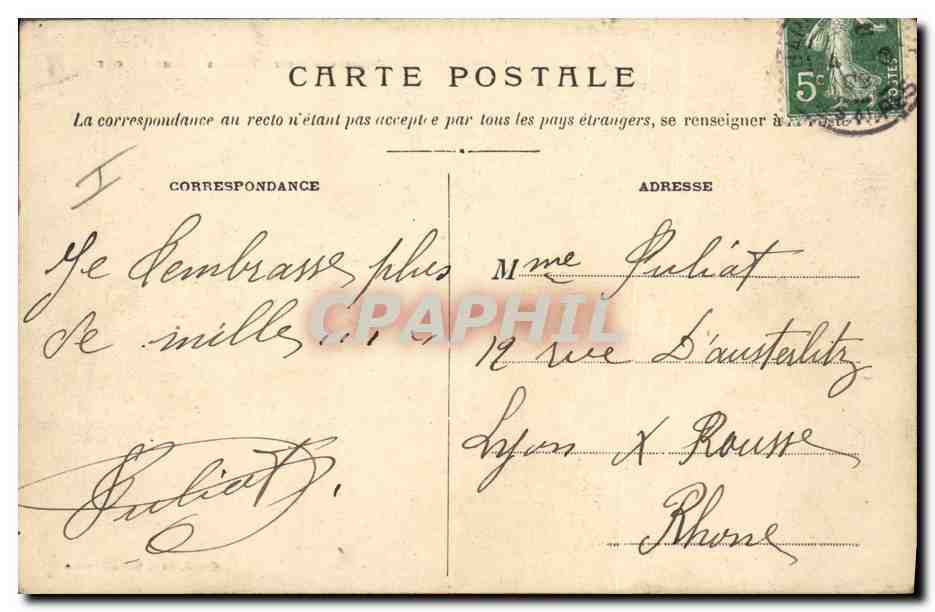 CARTE POSTALE
La correspondance au recto n'étant pas acceptée par tous les pays étrangers, se renseigner à
I
CORRESPONDANCE
Je t'embrasse plus
de mille
Puliat
ADRESSE
Mme Puliat
12 rue D'austerlitz
Lyon X Rousse
Rhone
5c
POSTES
CPAPHIL